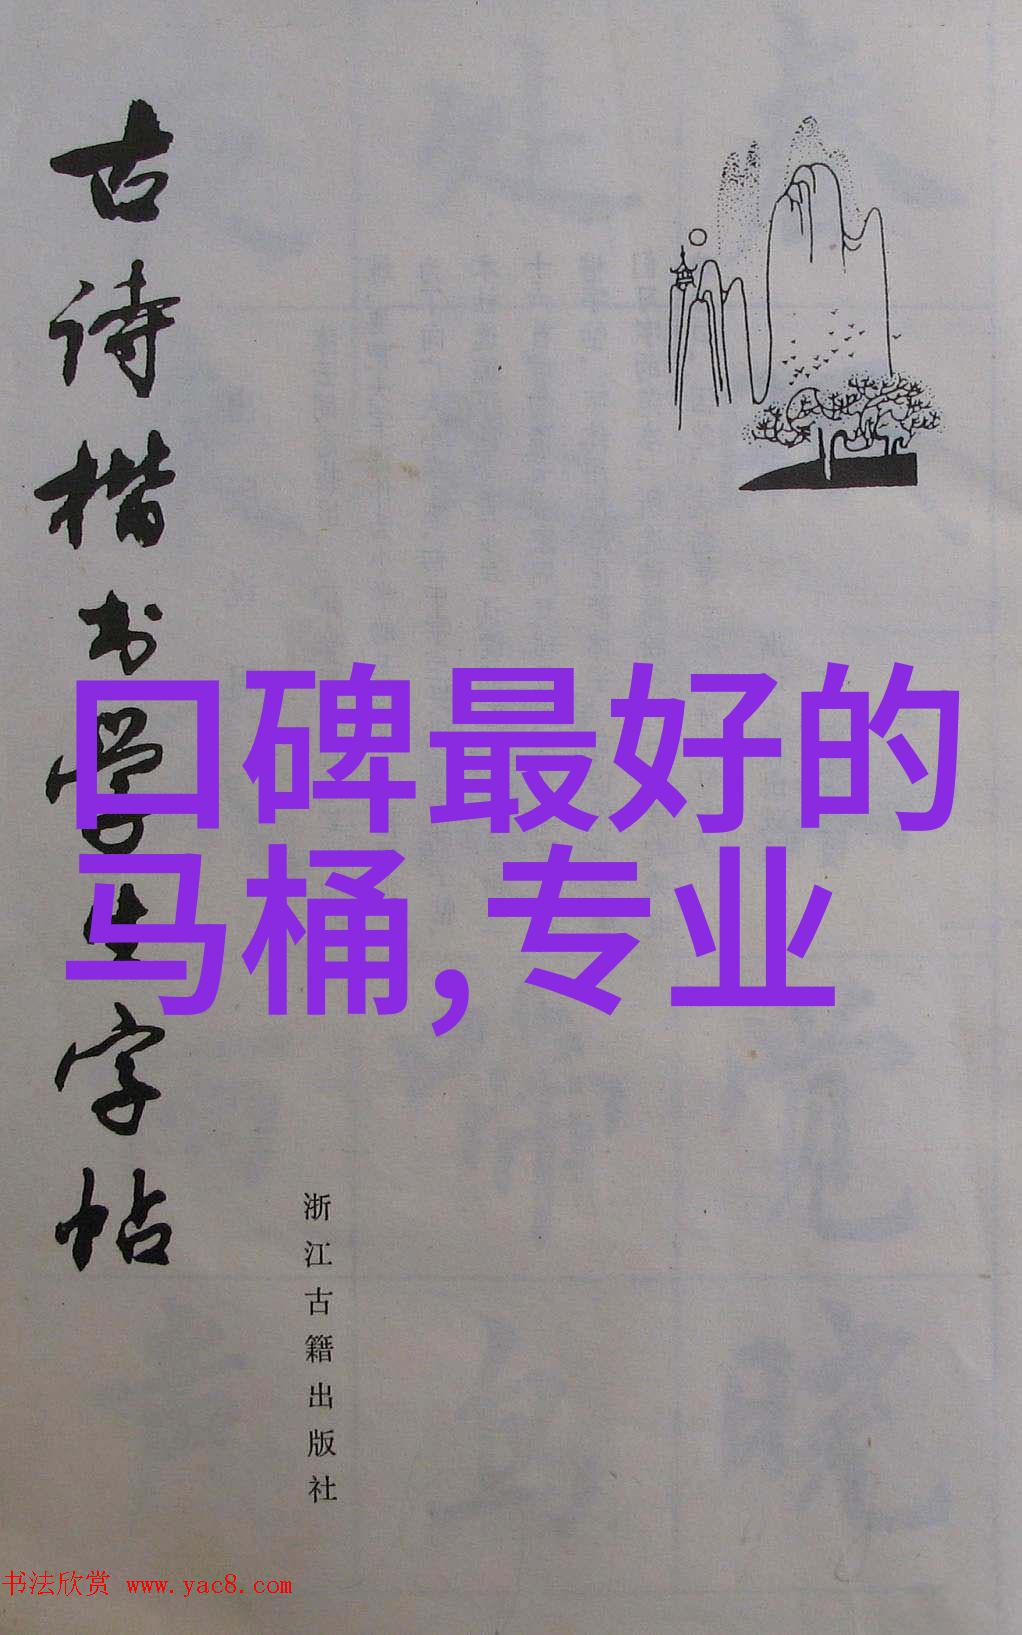 古诗楷书学生字帖
口碑最好的
马桶,专业
浙江古籍出版社
书法欣赏 www.yac8.com